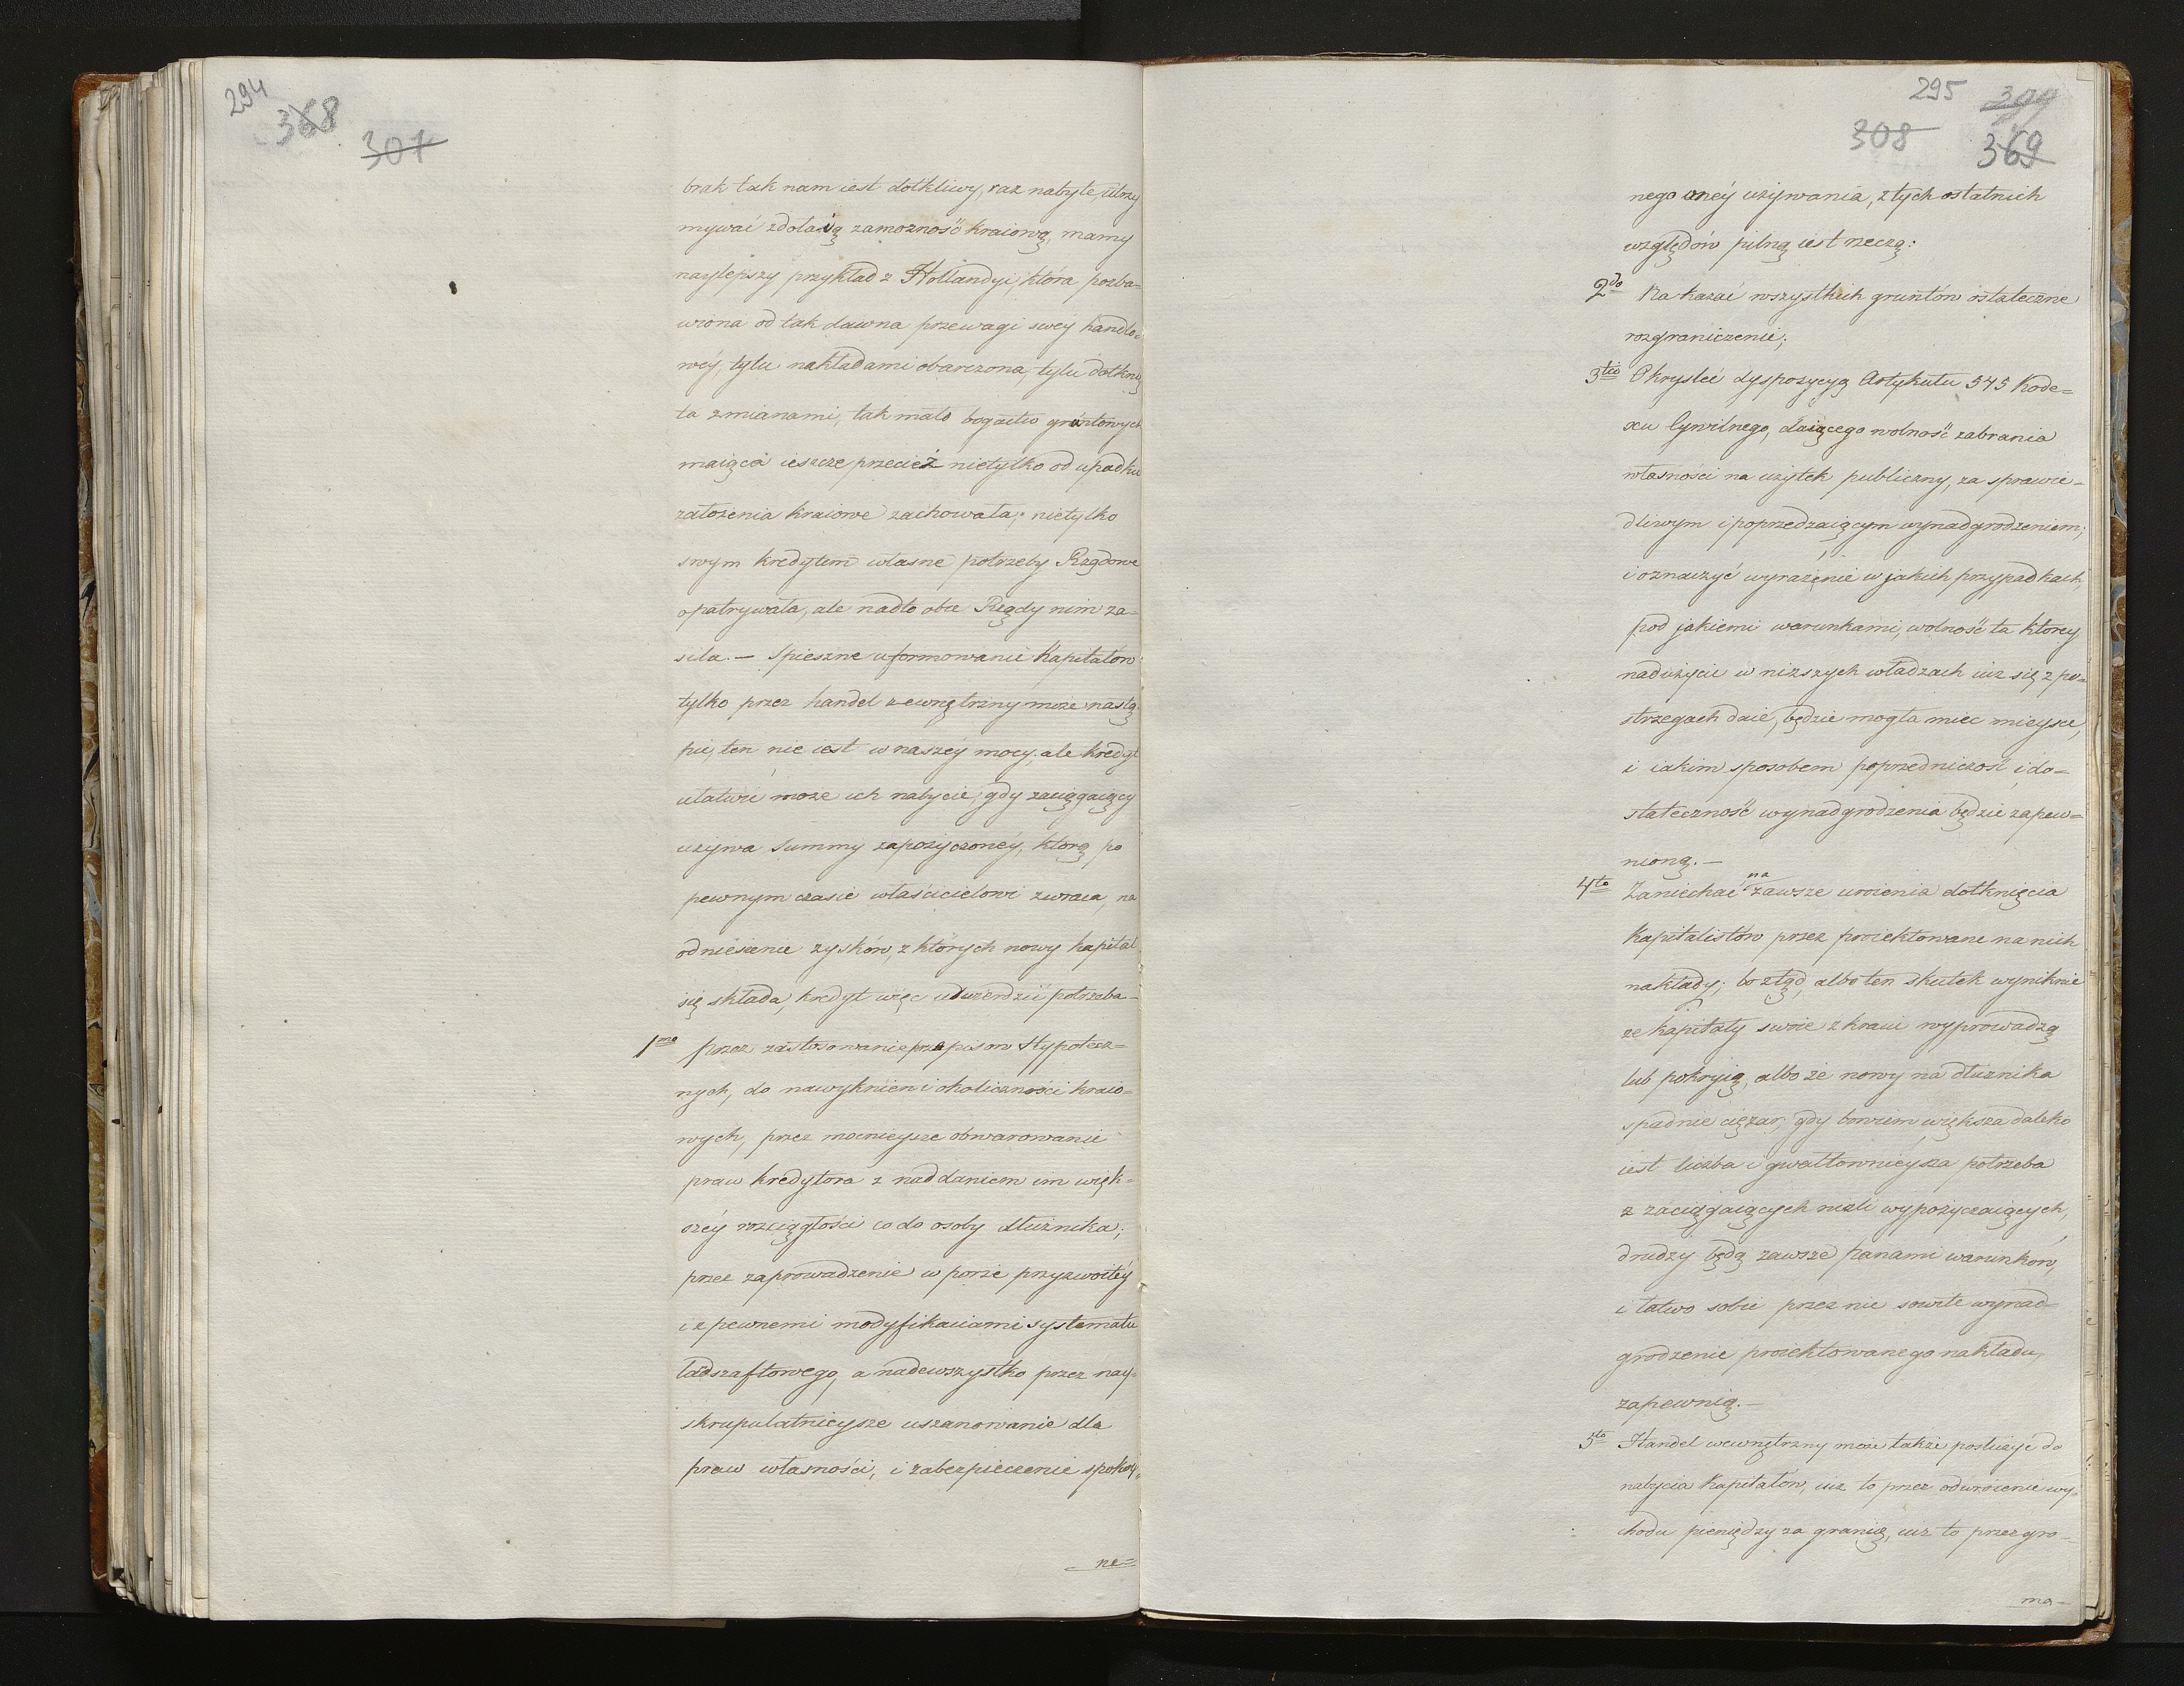 294
368
307
brak tak nam iest dotkliwy, raz nabyte, utrzy
mywać zdołaią zamożność kraiową, mamy
naylepszy przykład z Hollandyi, która pozba=
wiona od tak dawna przewagi swey handlo=
wéy, tylu nakładami obarczona, tylu dotknię
ta zmianami, tak mało bogactw gruntowych
maiąca ieszcze przecież nietylko od upadku
założenia kraiowe zachowała; nietylko
swym kredytem własne potrzeby Rządowe
opatrywała, ale nadto obce Rządy nim za=
sila. — Spieszne uformowanie Kapitałów
tylko przez handel zewnętrzny może nastą
pić, ten nie iest w naszéy mocy; ale kredyt
ułatwić może ich nabycie, gdy zaciągaiący
używa Summy zapożyczonéy, którą po
pewnym czasie właścicielowi zwraca, na
odniesienie zysków, z których nowy kapitał
się składa, kredyt więc utwierdzić potrzeba —
1mo przez zastosowanie przepisow Hypotecz=
nych, do nawyknień i okoliczności kraio=
wych, przez mocnieysze obwarowanie
praw kredytora z naddaniem im więk=
széy rozciągłości co do osoby dłużnika;
przez zaprowadzenie w porze przyzwoitéy
i z pewnemi modyfikaciami systematu
ladszaftowego, a nadewszystko przez nay=
skrupulatnieysze uszanowanie dla
praw własności, i zabezpieczenie spokoy=
ne=
295
399
308
369
nego onéy używania, z tych ostatnich
względów pilną iest rzeczą:
2do Nakazać wszystkich gruntów ostateczne
rozgraniczenie;
3tio Okryślić dyspozycyą Artykułu 545 Kode=
xu Cywilnego, daiącego wolność zabrania
własności na użytek publiczny, za sprawie=
dliwym i poprzedzaiącym wynadgrodzeniem;
i oznaczyć wyraźnie w jakich przypadkach,
pod jakiemi warunkami, wolność ta którey
nadużycie w niższych władzach iuż się z po=
strzegach daie, będzie mogła mieć mieysce,
i iakim sposobem poprzedniczość i do=
stateczność wynadgrodzenia będzie zapew=
nioną. —
4to Zaniechać na zawsze uroienia dotknięcia
Kapitalistów przez proiektowane na nich
nakłady; bo ztąd, albo ten skutek wyniknie
że kapitały swoie z kraiu wyprowadzą
lub pokryią, albo że nowy na dłużnika
spadnie ciężar; gdy bowiem większa daleko
iest liczba i gwałtownieysza potrzeba
z zaciągaiących niżli wypożyczaiących,
drudzy będą zawsze panami warunków,
i łatwo sobie przez nie sowite wynad=
grodzenie proiektowanego nakładu,
zapewnią. —
5to Handel wewnętrzny może także posłużyć do
nabycia Kapitałów, iuż to przez odwrócenie wy=
chodu pieniędzy za granicę, iuż to przez gro=
ma=